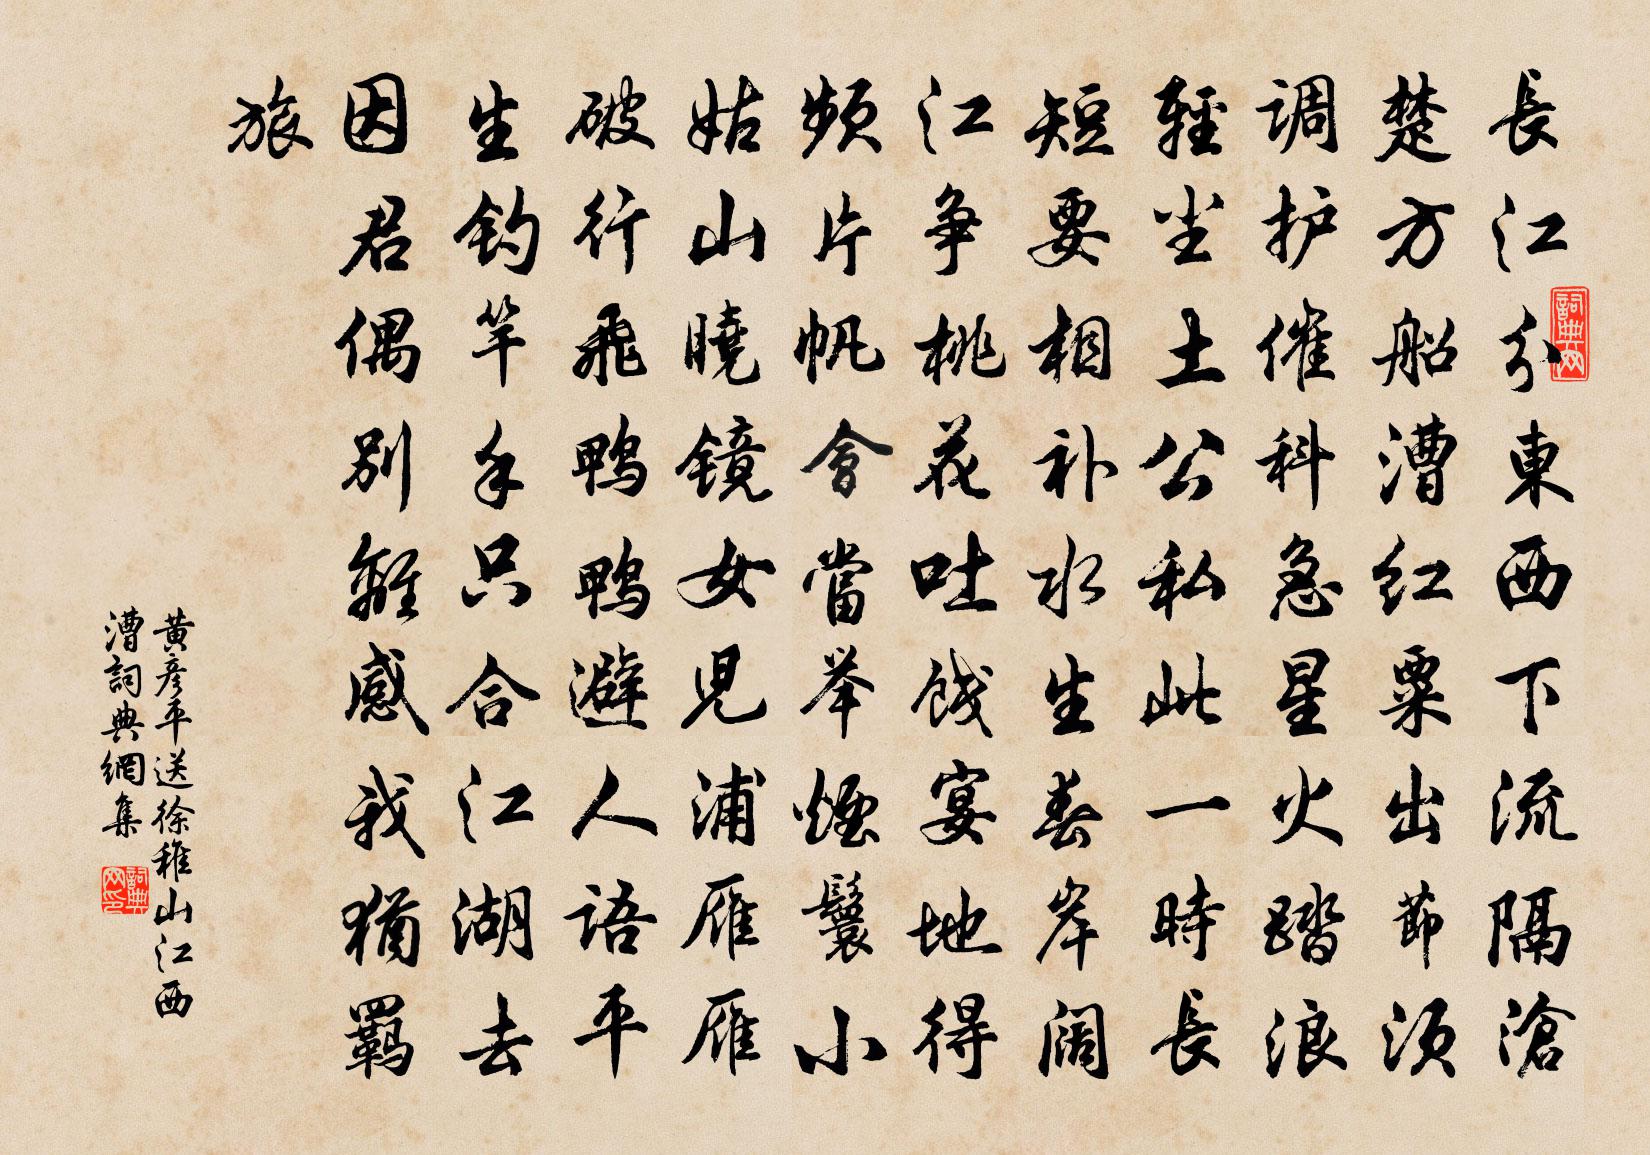 長江分東西下流隔滄
楚方船漕红粟出節须
调护催科急星火踏浪
輕尘土公私此一時長
短要相补水生春岸阔
江争桃花吐饯宴地得
频片帆會當举煙鬟小
姑山曉镜女児浦雁雁
破行飛鴨鴨避人语平
生钓竿手只合江湖去
因君偶别離感我猶羈
旅
黄彦平送徐稚山江西
漕詞典網集
詞典网
詞典网印